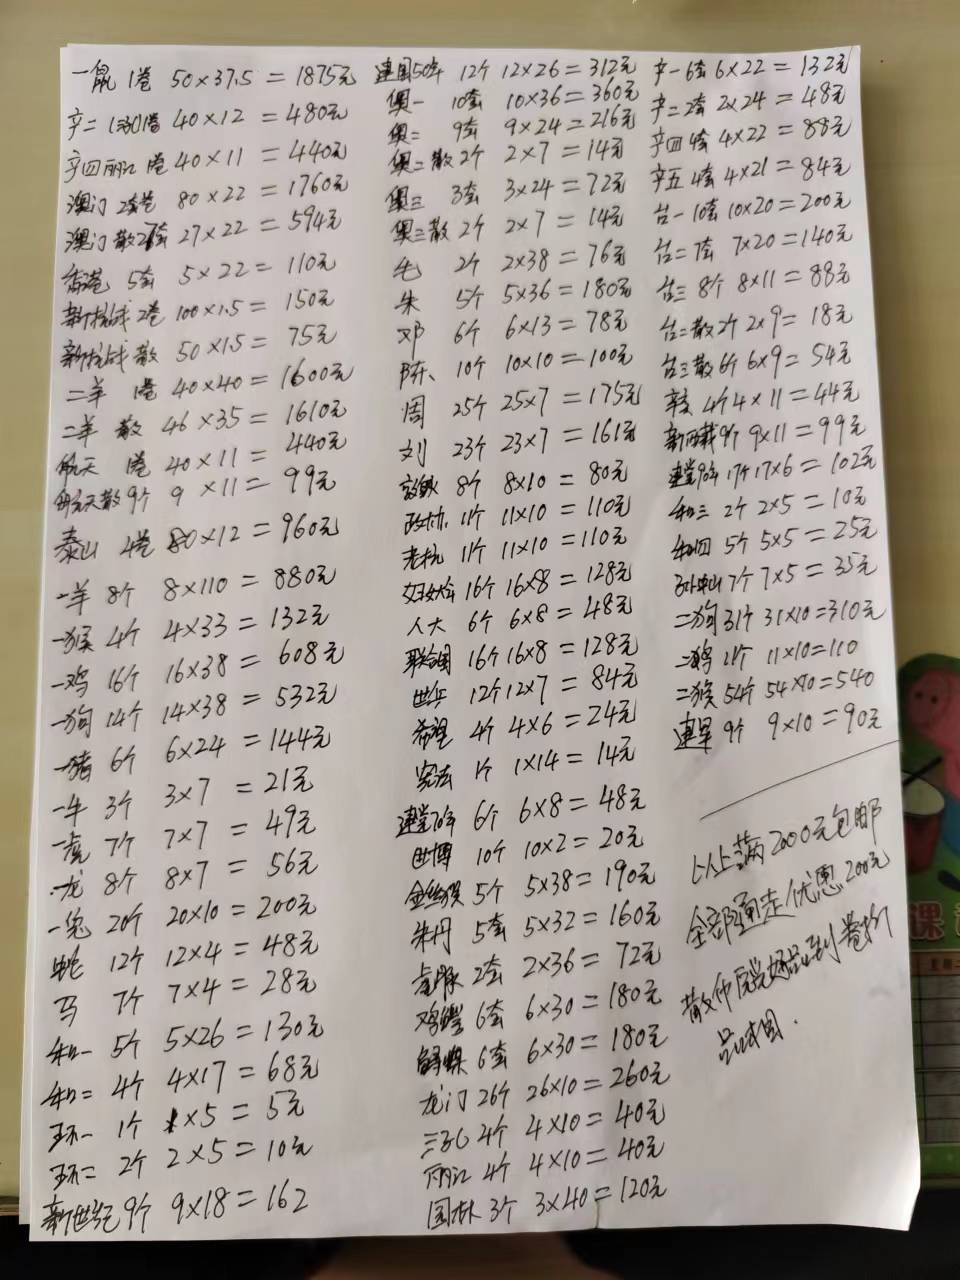 一鼠 1卷 50×37.5=1875元
辛二 1卷 40×12=480元
辛四丽江 1卷 40×11=440元
澳门 2套卷 80×22=1760元
澳门 散27套 27×22=594元
香港 5套 5×22=110元
新抗战 2卷 100×1.5=150元
新抗战 散 50×1.5=75元
二羊 1卷 40×40=1600元
二羊 散 46×35=1610元
航天 1卷 40×11=440元
航天散 9个 9×11=99元
泰山 2卷 80×12=960元
一羊 8个 8×110=880元
一猴 4个 4×33=132元
一鸡 16个 16×38=608元
一狗 14个 14×38=532元
一猪 6个 6×24=144元
一牛 3个 3×7=21元
一虎 7个 7×7=49元
龙 8个 8×7=56元
一兔 20个 20×10=200元
蛇 12个 12×4=48元
马 7个 7×4=28元
和一 5个 5×26=130元
和二 4个 4×17=68元
环一 1个 1×5=5元
环二 2个 2×5=10元
新世纪 9个 9×18=162
建国50年 12个 12×26=312元
奥一 10套 10×36=360元
奥二 9套 9×24=216元
奥二散 2个 2×7=14元
奥三 3套 3×24=72元
奥三散 2个 2×7=14元
毛 2个 2×38=76元
朱 5个 5×36=180元
邓 6个 6×13=78元
陈 10个 10×10=100元
周 25个 25×7=175元
刘 23个 23×7=161元
8个 8×10=80元
政协 11个 11×10=110元
老抗 11个 11×10=110元
妇女会 16个 16×8=128元
人大 6个 6×8=48元
联合国 16个 16×8=128元
世乒 12个 12×7=84元
希望 4个 4×6=24元
宪法 1个 1×14=14元
建党70年 6个 6×8=48元
世博 10个 10×2=20元
金丝猴 5个 5×38=190元
朱丹 5套 5×32=160元
虎豚 2套 2×36=72元
鸡鳄 6套 6×30=180元
蝶 6套 6×30=180元
龙门 26个 26×10=260元
三孔 4个 4×10=40元
丽江 4个 4×10=40元
国林 3个 3×40=120元
辛一 6套 6×22=132元
辛二 2套 2×24=48元
辛四 4套 4×22=88元
辛五 4套 4×21=84元
台一 10套 10×20=200元
台二 7套 7×20=140元
台三 8个 8×11=88元
台二散 2个 2×9=18元
台三散 6个 6×9=54元
4个 4×11=44元
新西藏 9个 9×11=99元
建党90年 17个 17×6=102元
和三 2个 2×5=10元
和四 5个 5×5=25元
孙中山 7个 7×5=35元
二狗 31个 31×10=310元
二鸡 11个 11×10=110
二猴 54个 54×10=540
建军 9个 9×10=90元
以上满2000元包邮
全部通走优惠200元
散币原光好品到卷拆
品求图.
课